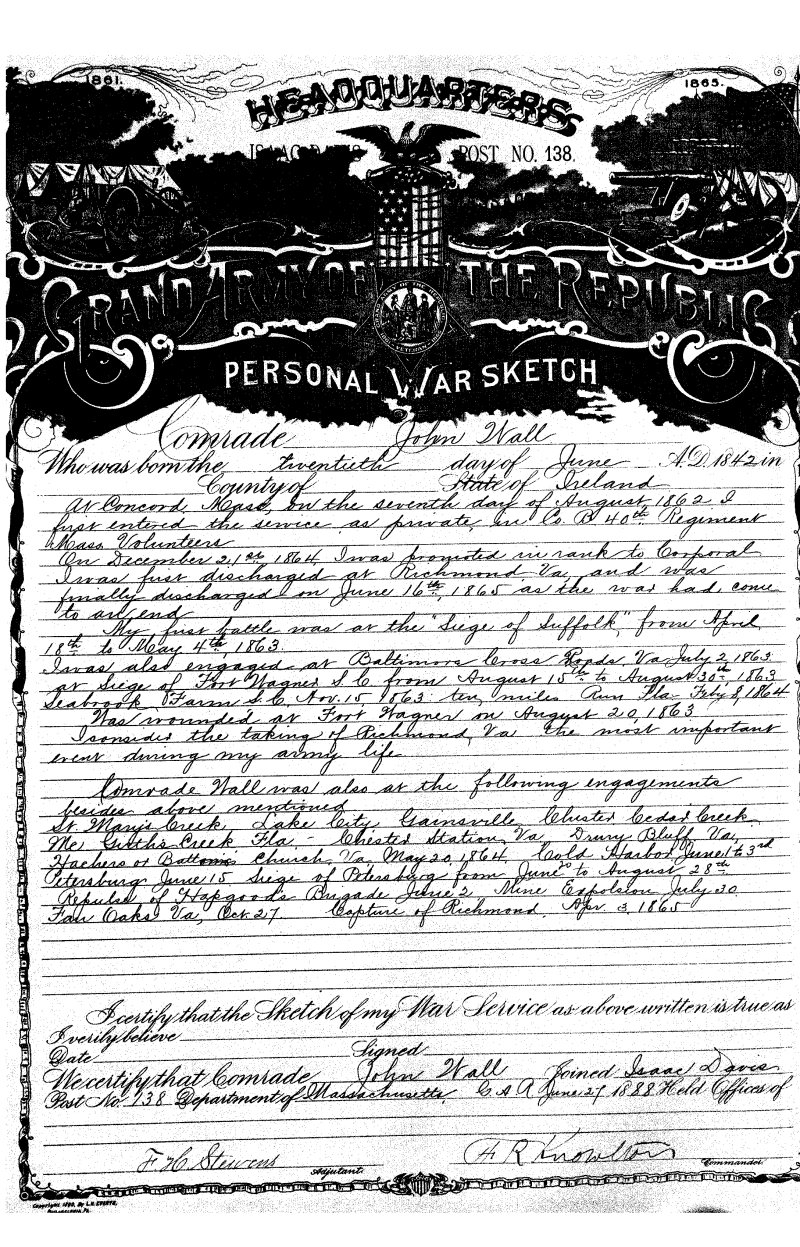 1861.
1865.
HEADQUARTERS
ISAAC DAVIS POST NO. 138.
GRAND ARMY OF THE REPUBLIC
PERSONAL WAR SKETCH
Comrade John Wall
Who was born the twentieth day of June A.D. 1842 in
County of State of Ireland
At Concord, Mass, on the seventh day of August 1862 I
first entered the service as private, in Co. B 40th Regiment
Mass. Volunteers
On December 21st 1864, I was promoted in rank to Corporal
I was first discharged at Richmond Va, and was
finally discharged on June 16th, 1865 as the war had come
to an end
My first battle was at the "Siege of Suffolk," from April
18th to May 4th 1863.
I was also engaged at Baltimore Cross Roads, Va July 2, 1863
at Siege of Fort Wagner S.C from August 15th to August 30th, 1863
Seabrook Farm S.C. Nov. 15, 1863. ten miles Run Fla Feby 8, 1864
Was wounded at Fort Wagner on August 20, 1863
I consider the taking of Richmond, Va the most important
event during my army life
Comrade Wall was also at the following engagements
besides above mentioned
St. Marys Creek, Lake City, Gainsville, Chester Cedar Creek
Mc Girths Creek, Fla. - Chester Station, Va, Drury Bluff, Va,
Hachers or Bottoms Church, Va, May 20, 1864. Cold Harbor June 1 to 3rd
Petersburg June 15 Siege of Petersburg from June to August 28th
Repulse of Hapgood's Brigade June 2 Mine Expolsion July 30
Fair Oaks Va, Oct 27 Capture of Richmond, Apr. 3, 1865
I certify that the Sketch of my War Service as above written is true as
I verily believe
Date Signed
We certify that Comrade John Wall Joined Isaac Davis
Post No. 138 Department of Massachusetts, G A R June 27 1888 Held Offices of
F. H. Stevens A R Knowlton
Adjutant. Commander.
Copyright 1890, By L.H. EVERTS,
PHILADELPHIA, PA.